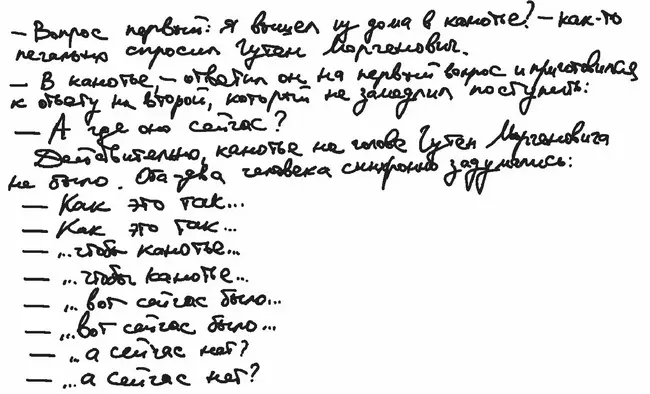 — Вопрос первый: я вышел из дома в канотье? — как-то
печально спросил Гутен Моргенович.
— В канотье, — ответил он на первый вопрос и приготовился
к ответу на второй, который не замедлил поступить:
— А где оно сейчас?
Действительно, канотье на голове Гутен Моргеновича
не было. Оба-два человека синхронно задумались:
— Как это так...
— Как это так...
— ...чтобы канотье...
— ...чтобы канотье...
— ...вот сейчас было...
— ...вот сейчас было...
— ...а сейчас нет?
— ...а сейчас нет?